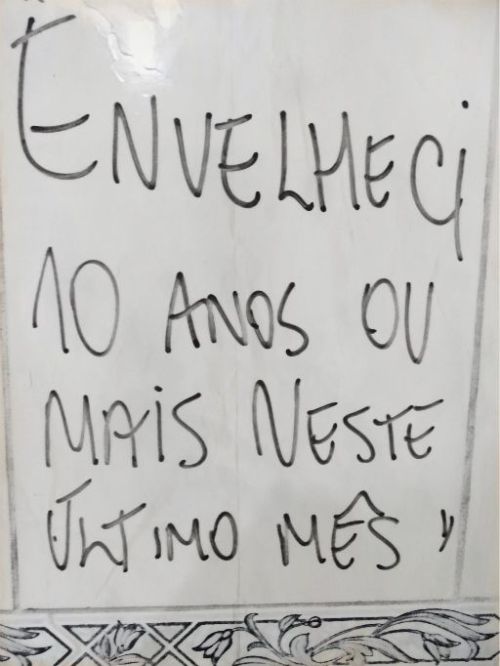 ENVELHECi
10 ANOS OU
MAiS NESTE
ÚLTIMO MÊS "